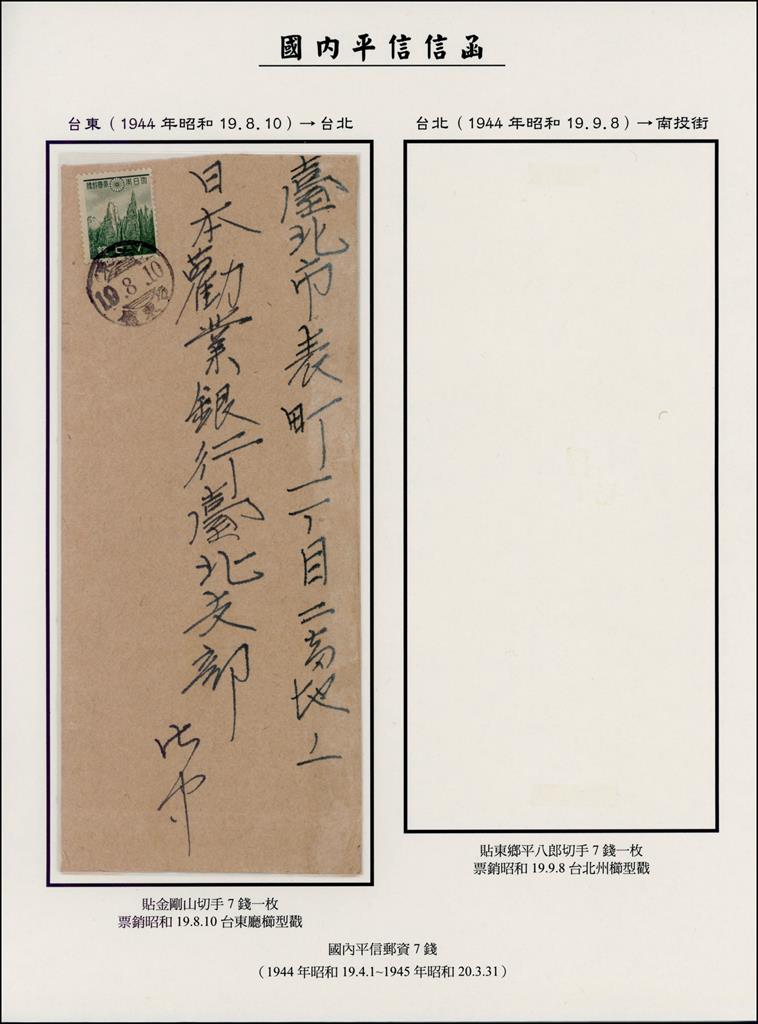 國內平信信函
台東（1944 年昭和 19.8.10）→台北
台北（1944 年昭和 19.9.8）→南投街
臺北市表町一丁目二番地ノ
日本勸業銀行臺北支部
御中
大日本帝國郵便
19.8.10
臺東
貼金剛山切手 7 錢一枚
票銷昭和 19.8.10 台東廳櫛型戳
貼東鄉平八郎切手 7 錢一枚
票銷昭和 19.9.8 台北州櫛型戳
國內平信郵資 7 錢
（1944 年昭和 19.4.1~1945 年昭和 20.3.31）